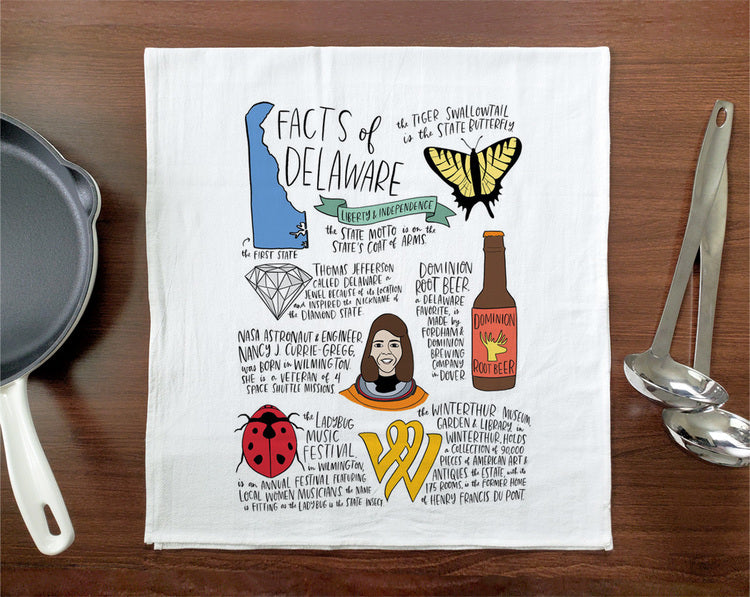 FACTS of
DELAWARE
the TIGER SWALLOWTAIL
is the STATE BUTTERFLY
LIBERTY & INDEPENDENCE
the STATE MOTTO is on the
STATE'S COAT of ARMS.
the FIRST STATE
THOMAS JEFFERSON
CALLED DELAWARE a
JEWEL BECAUSE of its LOCATION
and INSPIRED the NICKNAME of
the DIAMOND STATE.
DOMINION
ROOT BEER,
a DELAWARE
FAVORITE, is
MADE by
FORDHAM &
DOMINION
BREWING
COMPANY
in DOVER.
DOMINION
ROOT BEER
NASA ASTRONAUT & ENGINEER,
NANCY J. CURRIE-GREGG,
was BORN in WILMINGTON.
SHE is a VETERAN of 4
SPACE SHUTTLE MISSIONS.
the LADYBUG
MUSIC
FESTIVAL,
in WILMINGTON,
is an ANNUAL FESTIVAL FEATURING
LOCAL WOMEN MUSICIANS. the NAME
is FITTING as the LADYBUG is the STATE INSECT.
the WINTERTHUR MUSEUM,
GARDEN & LIBRARY, in
WINTERTHUR, HOLDS
a COLLECTION of 90,000
PIECES of AMERICAN ART &
ANTIQUES. the ESTATE, with its
175 ROOMS, is the FORMER HOME
of HENRY FRANCIS DU PONT.